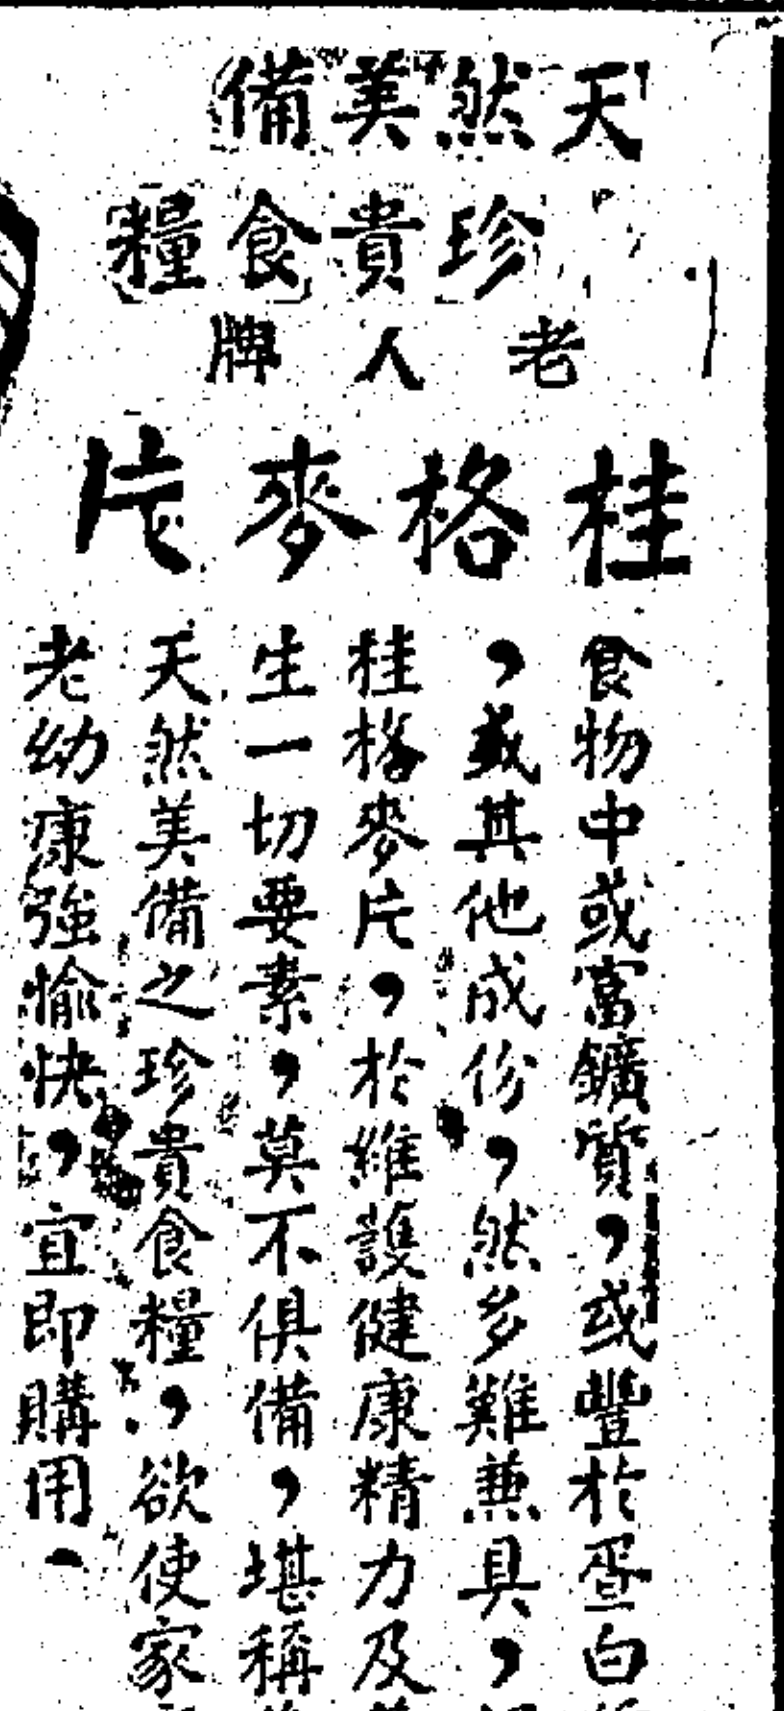 天然美備
珍貴食糧
老人牌
桂格麥片
食物中或富鑛質，或豐於蛋白
，或其他成份，然多難兼具，
桂格麥片，於維護健康精力及
生一切要素，莫不俱備，堪稱
天然美備之珍貴食糧，欲使家
老幼康強愉快，宜即購用